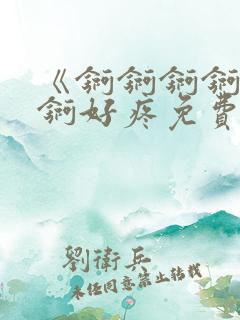 《錒錒錒錒
錒好疼免費
劉衛兵
未经同意禁止转载